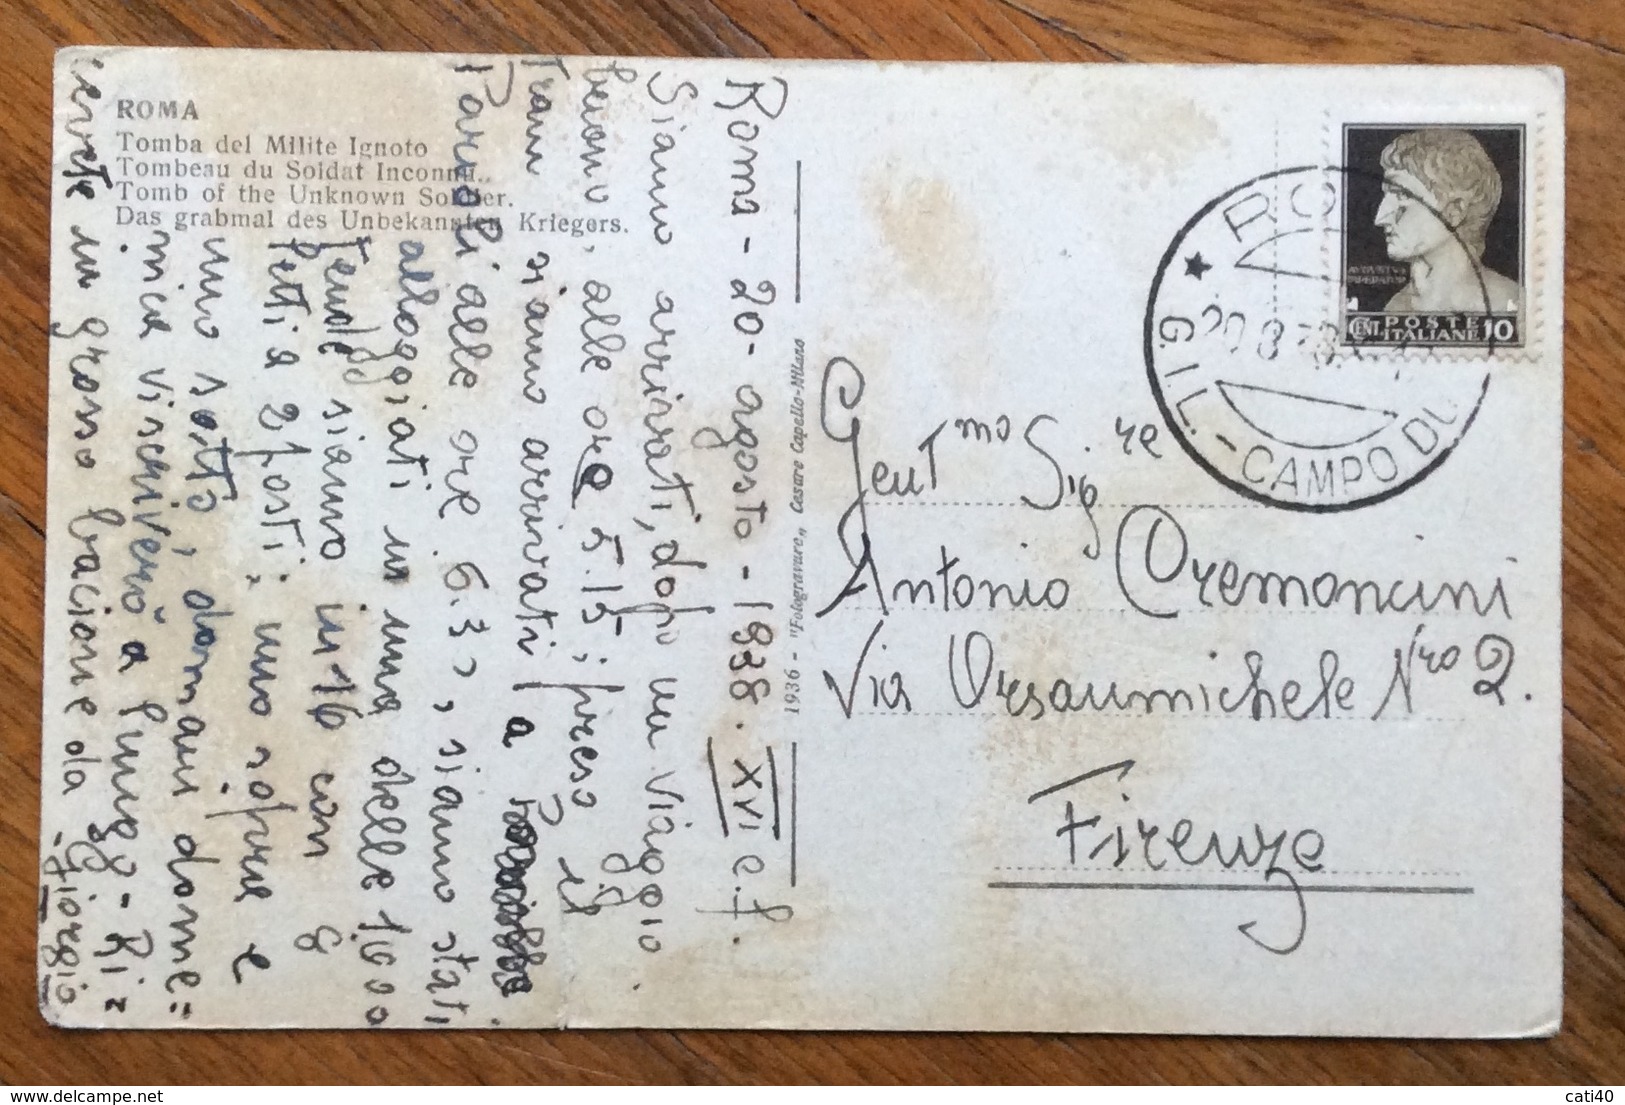 ROMA
Tomba del Milite Ignoto
Tombeau du Soldat Inconnu..
Tomb of the Unknown Soldier.
Das grabmal des Unbekansten Kriegers.
Roma - 20 - agosto - 1938. XVI e.f.
Siamo arrivati, dopo un viaggio
buono, alle ore 5.15; preso il
Tram siamo arrivati a
Parioli alle ore 6.30, siamo stati
alloggiati in una delle 1000
Tende siamo in 16 con 8
letti a 2 posti; uno sopra e
uno sotto, domani dome=
nica vi scriverò a lungo - Ri=
cevete un grosso bacione da Giorgio
1936 - "Fotogravure„ Cesare Capello-Milano
Gent.mo Sig.re
Antonio Cremoncini
Via Orsanmichele Nro 2.
Firenze
ROMA
G.I.L. - CAMPO DU
20.8.38
AVGVSTVS
IMPERATOR
CENT. POSTE ITALIANE 10
cati40